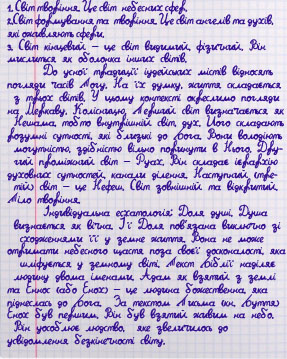 1. Світ творіння. Це світ небесних сфер.
2. Світ формування та творіння. Це світ ангелів та духів,
які оживляють сфери.
3. Світ кінцевий – це світ видимий, фізичний. Він
мислиться як оболонка інших світів.
До усної традиції іудейських містів відносять
погляди часів Логу. На їх думку, життя складається
з трьох світів. У цьому контексті окреслимо погляди
на Меркаву. Колісницю. Перший світ визначається як
Нешама, тобто внутрішній світ, дух. Його складають
розумні сутності, які близькі до Бога. Вони володіють
могутністю, здібністю вільно поринути в Нього. Дру-
гий проміжний світ – Руах. Він складає ієрархію
духовних сутностей, канали ділення. Наступний, тре-
тій світ – це Нефеш. Світ зовнішній та відкритий.
Тіло творіння.
Індивідуальна есхатологія: Доля душі. Душа
визнається як вічна. Її Доля пов'язана виключно зі
сходженнями її у земне життя. Вона не може
отримати небесного щастя поза своєї досконалості, яка
шліфується у земному світі. Текст Біблії наділяє
людину двома іменами. Адам як взятий з землі
та Енох (або Енох) – це людина божественна, яка
піднеслась до Бога. За текстом Письма (кн. Буття)
Енох був першим. Він був взятий живим на небо.
Він уособлює людство, яке звеличилось до
усвідомлення безкінечності світу.